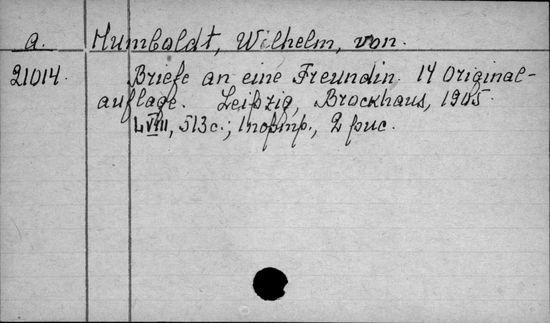 a. Humboldt, Wilhelm, von.
21014. Briefe an eine Freundin. 14 Original-
auflage. Leipzig, Brockhaus, 1905
LVIII, 513с.; 1 портр., 2 рис.